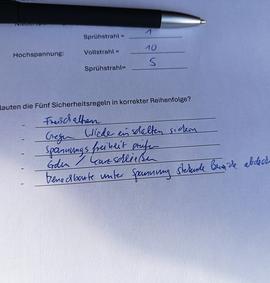 Sprühstrahl = 1
Hochspannung: Vollstrahl = 10
Sprühstrahl= 5
lauten die Fünf Sicherheitsregeln in korrekter Reihenfolge?
- Freischalten
- Gegen Wiedereinschalten sichern
- Spannungsfreiheit prüfen
- Erden / Kurzschließen
- benachbarte unter Spannung stehende abdeck